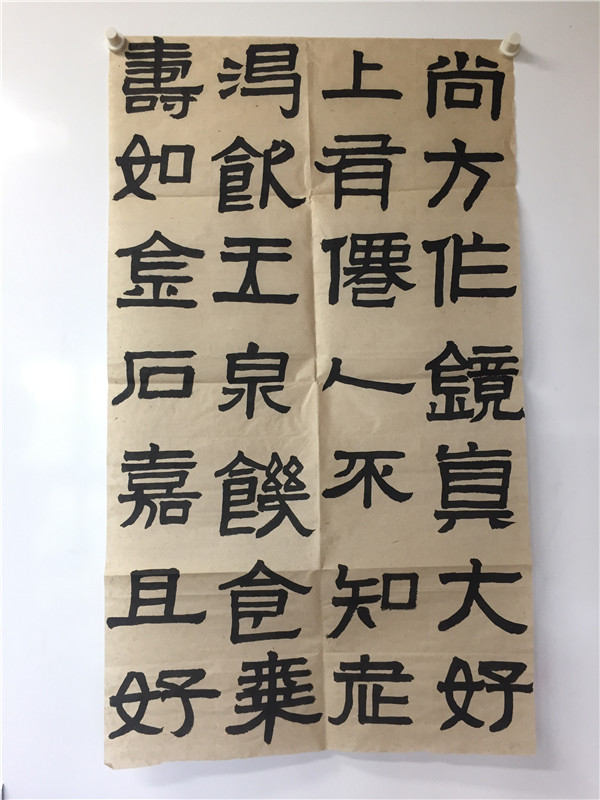 尚方作鏡真大好
上有僊人不知老
渴飲玉泉饑食棗
壽如金石嘉且好